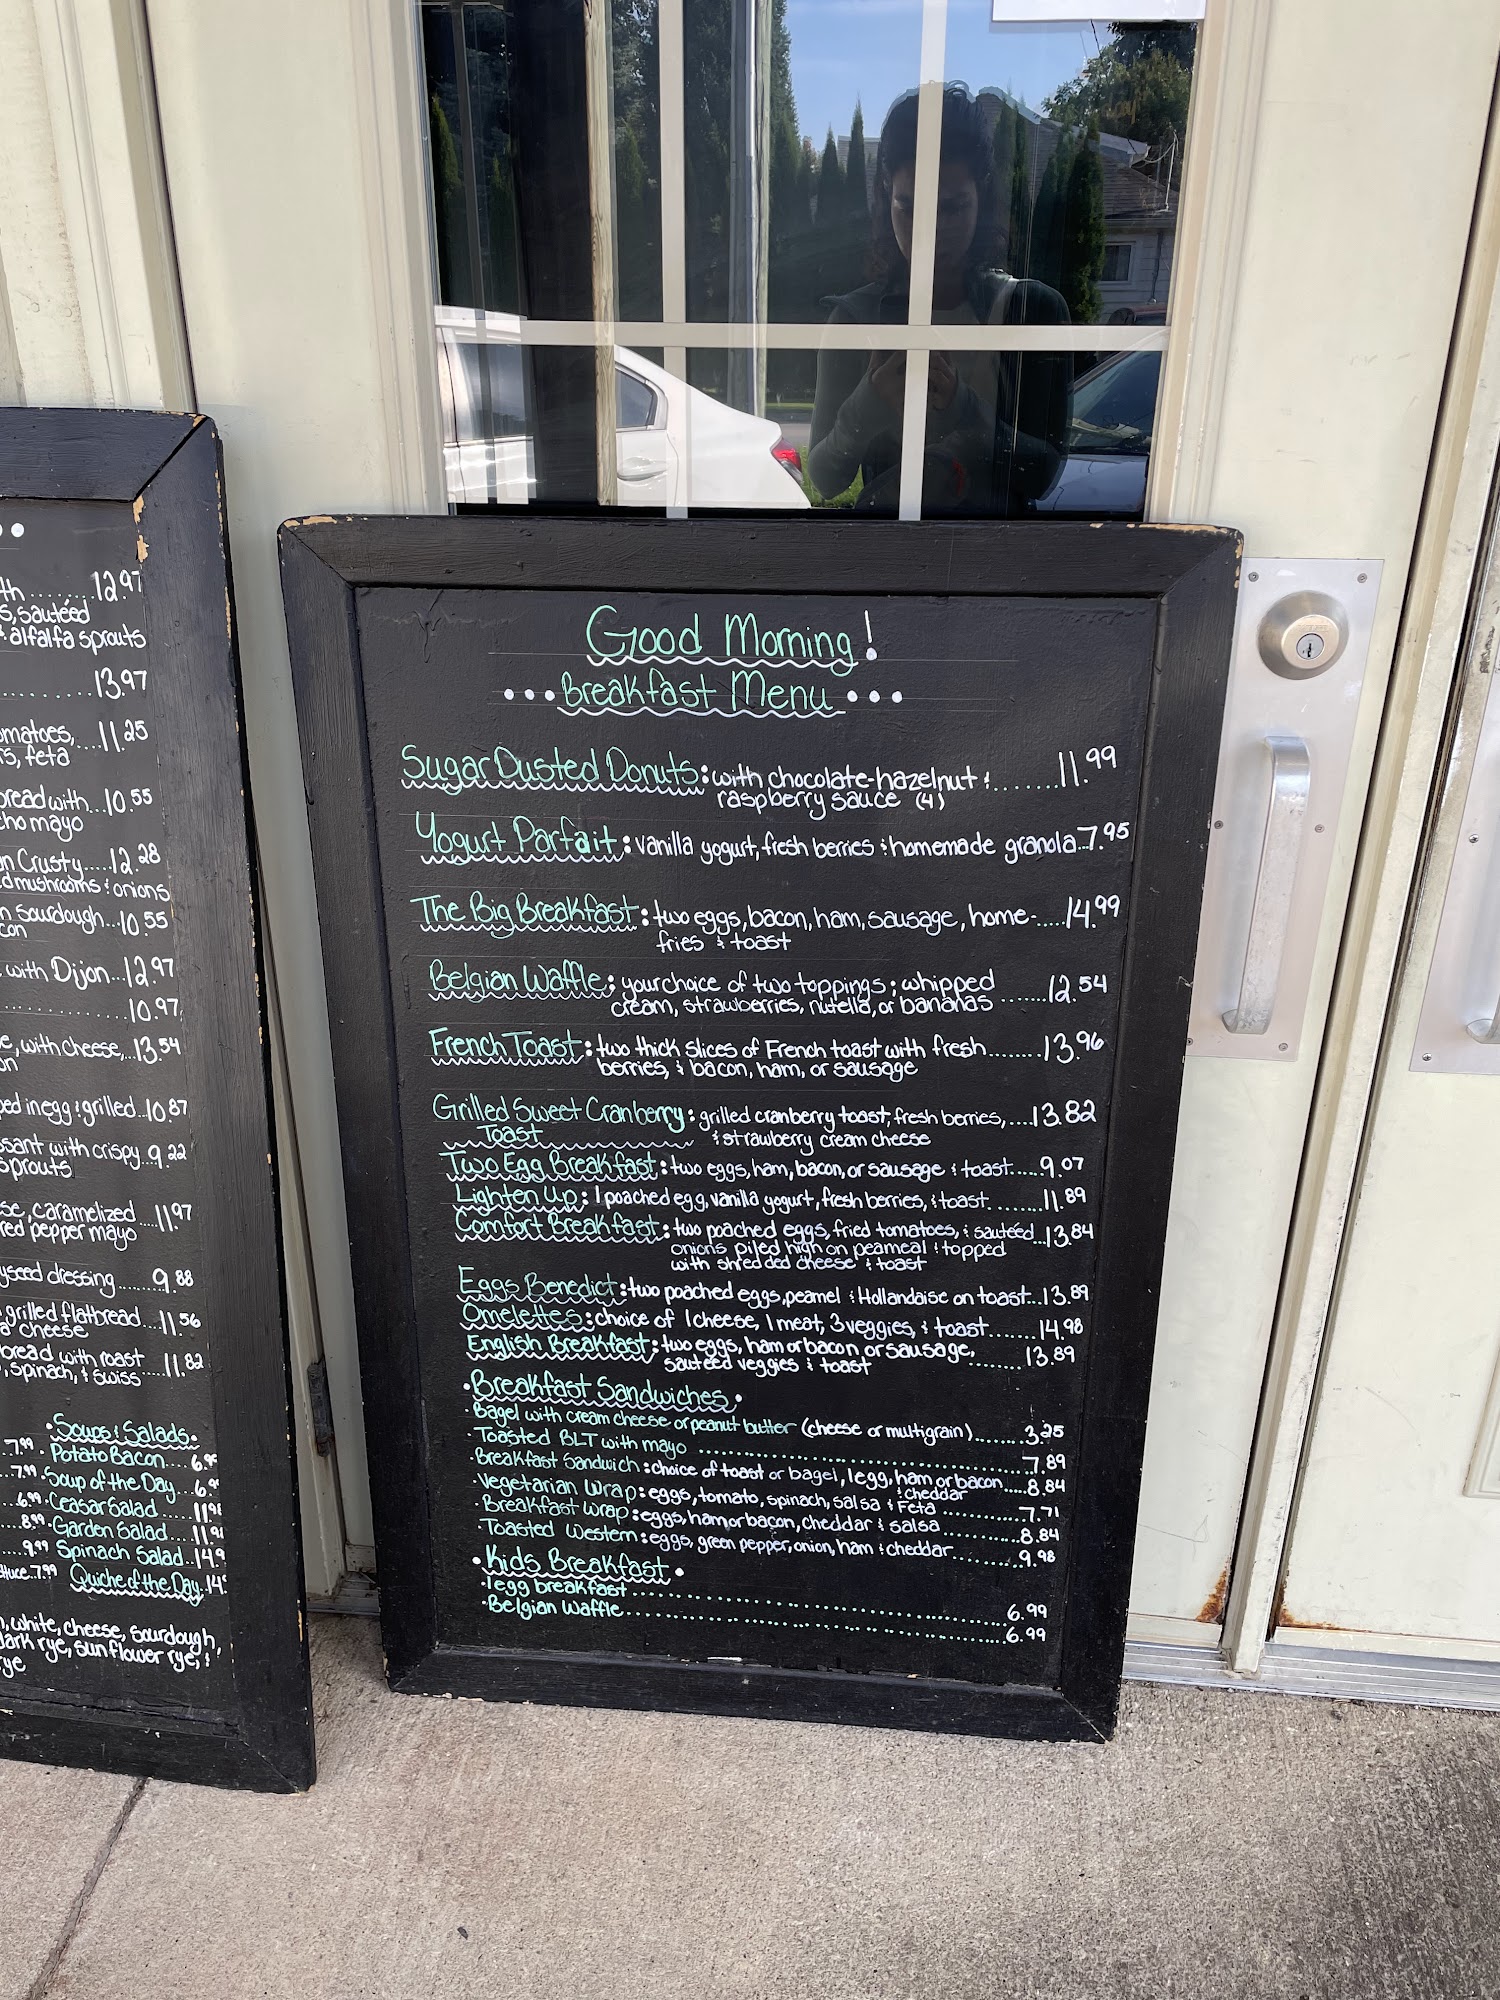 th.......12.97
s, sautéed
& alfalfa sprouts
..........13.97
omatoes,....11.25
rs, feta
bread with...10.55
cho mayo
n Crusty.....12.28
ed mushrooms & onions
n Sourdough...10.55
con
with Dijon...12.97
10.97
e, with cheese,...13.54
on
ped in egg & grilled..10.87
ssant with crispy..9.22
sprouts
se, caramelized....11.97
red pepper mayo
yseed dressing......9.88
grilled flatbread...11.56
a cheese
bread with roast....11.82
, spinach, & swiss
•Soups & Salads•
7.99 • Potato Bacon....6.99
7.99 • Soup of the Day...6.9
6.99 • Ceasar Salad.....11.98
8.99 • Garden Salad....11.9
9.99 Spinach Salad..14.9
ttuce..7.99 Quiche of the Day.14
, white, cheese, sourdough,
dark rye, sunflower rye, &
rye
Good Morning!
•••Breakfast Menu•••
Sugar Dusted Donuts: with chocolate-hazelnut &.......11.99
raspberry sauce (4)
Yogurt Parfait: vanilla yogurt, fresh berries & homemade granola..7.95
The Big Breakfast: two eggs, bacon, ham, sausage, home-.....14.99
fries & toast
Belgian Waffle: your choice of two toppings; whipped
cream, strawberries, nutella, or bananas.......12.54
French Toast: two thick slices of French toast with fresh........13.96
berries, & bacon, ham, or sausage
Grilled Sweet Cranberry: grilled cranberry toast, fresh berries,....13.82
Toast & strawberry cream cheese
Two Egg Breakfast: two eggs, ham, bacon, or sausage & toast......9.07
Lighten Up: 1 poached egg, vanilla yogurt, fresh berries, & toast.......11.89
Comfort Breakfast: two poached eggs, fried tomatoes, & sautéed...13.84
onions piled high on peameal & topped
with shredded cheese & toast
Eggs Benedict: two poached eggs, peamel & Hollandaise on toast...13.89
Omelettes: choice of 1 cheese, 1 meat, 3 veggies, & toast......14.98
English Breakfast: two eggs, ham or bacon or sausage,.......13.89
sautéed veggies & toast
•Breakfast Sandwiches•
•Bagel with cream cheese or peanut butter (cheese or multigrain)........3.25
•Toasted BLT with mayo..........7.89
•Breakfast Sandwich: choice of toast or bagel, 1 egg, ham or bacon.....8.84
& cheddar
•Vegetarian Wrap: eggs, tomato, spinach, salsa & Feta..........7.71
•Breakfast Wrap: eggs, ham or bacon, cheddar & salsa..........8.84
•Toasted Western: eggs, green pepper, onion, ham & cheddar........9.98
•Kids Breakfast•
•1 egg breakfast..........6.99
•Belgian Waffle..........6.99